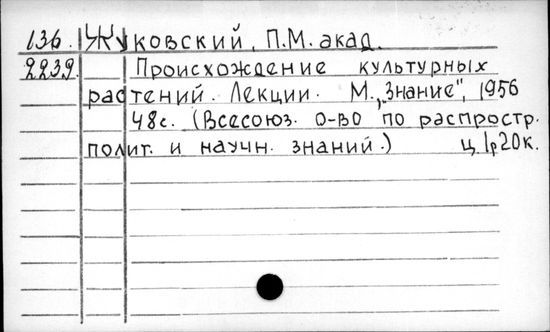 136. Жуковский, П.М. акад.
2239. Происхождение культурных
растений. Лекции. М., „Знание", 1956
48с. (Всесоюз. о-во по распростр.
полит. и научн. знаний.) ц. 1р20к.